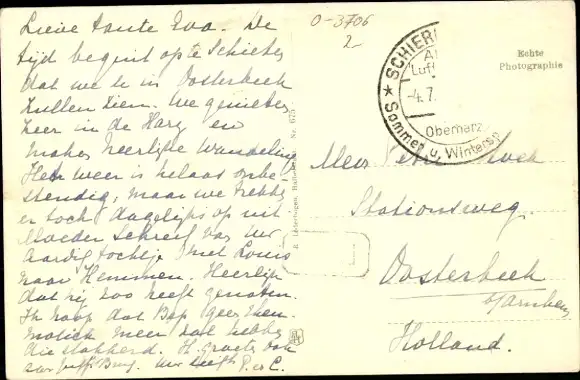 Lieve tante Eva. De
tijd begint op te schieten
dat we U in Oosterbeek
zullen zien. We genieten
zeer in de Harz en
maken heerlijke wandelingen
Het weer is helaas onbe
stendig, maar we trekken
er toch dagelijks op uit
Moeder schreef van Uw
aardig tochtje met Louis
naar Hemmen. Heerlijk
dat zij zoo heeft genoten.
Ik hoop dat Bap geen
meer zal hebben
die stakkerd. H. groeten ook
P. en C.
O-3706
2
SCHIER
Luf
-4.7.
Oberharz
Sommer u. Wintersp
Echte
Photographie
Mevr
Stationsweg
Oosterbeek
b/Arnhem
Holland.